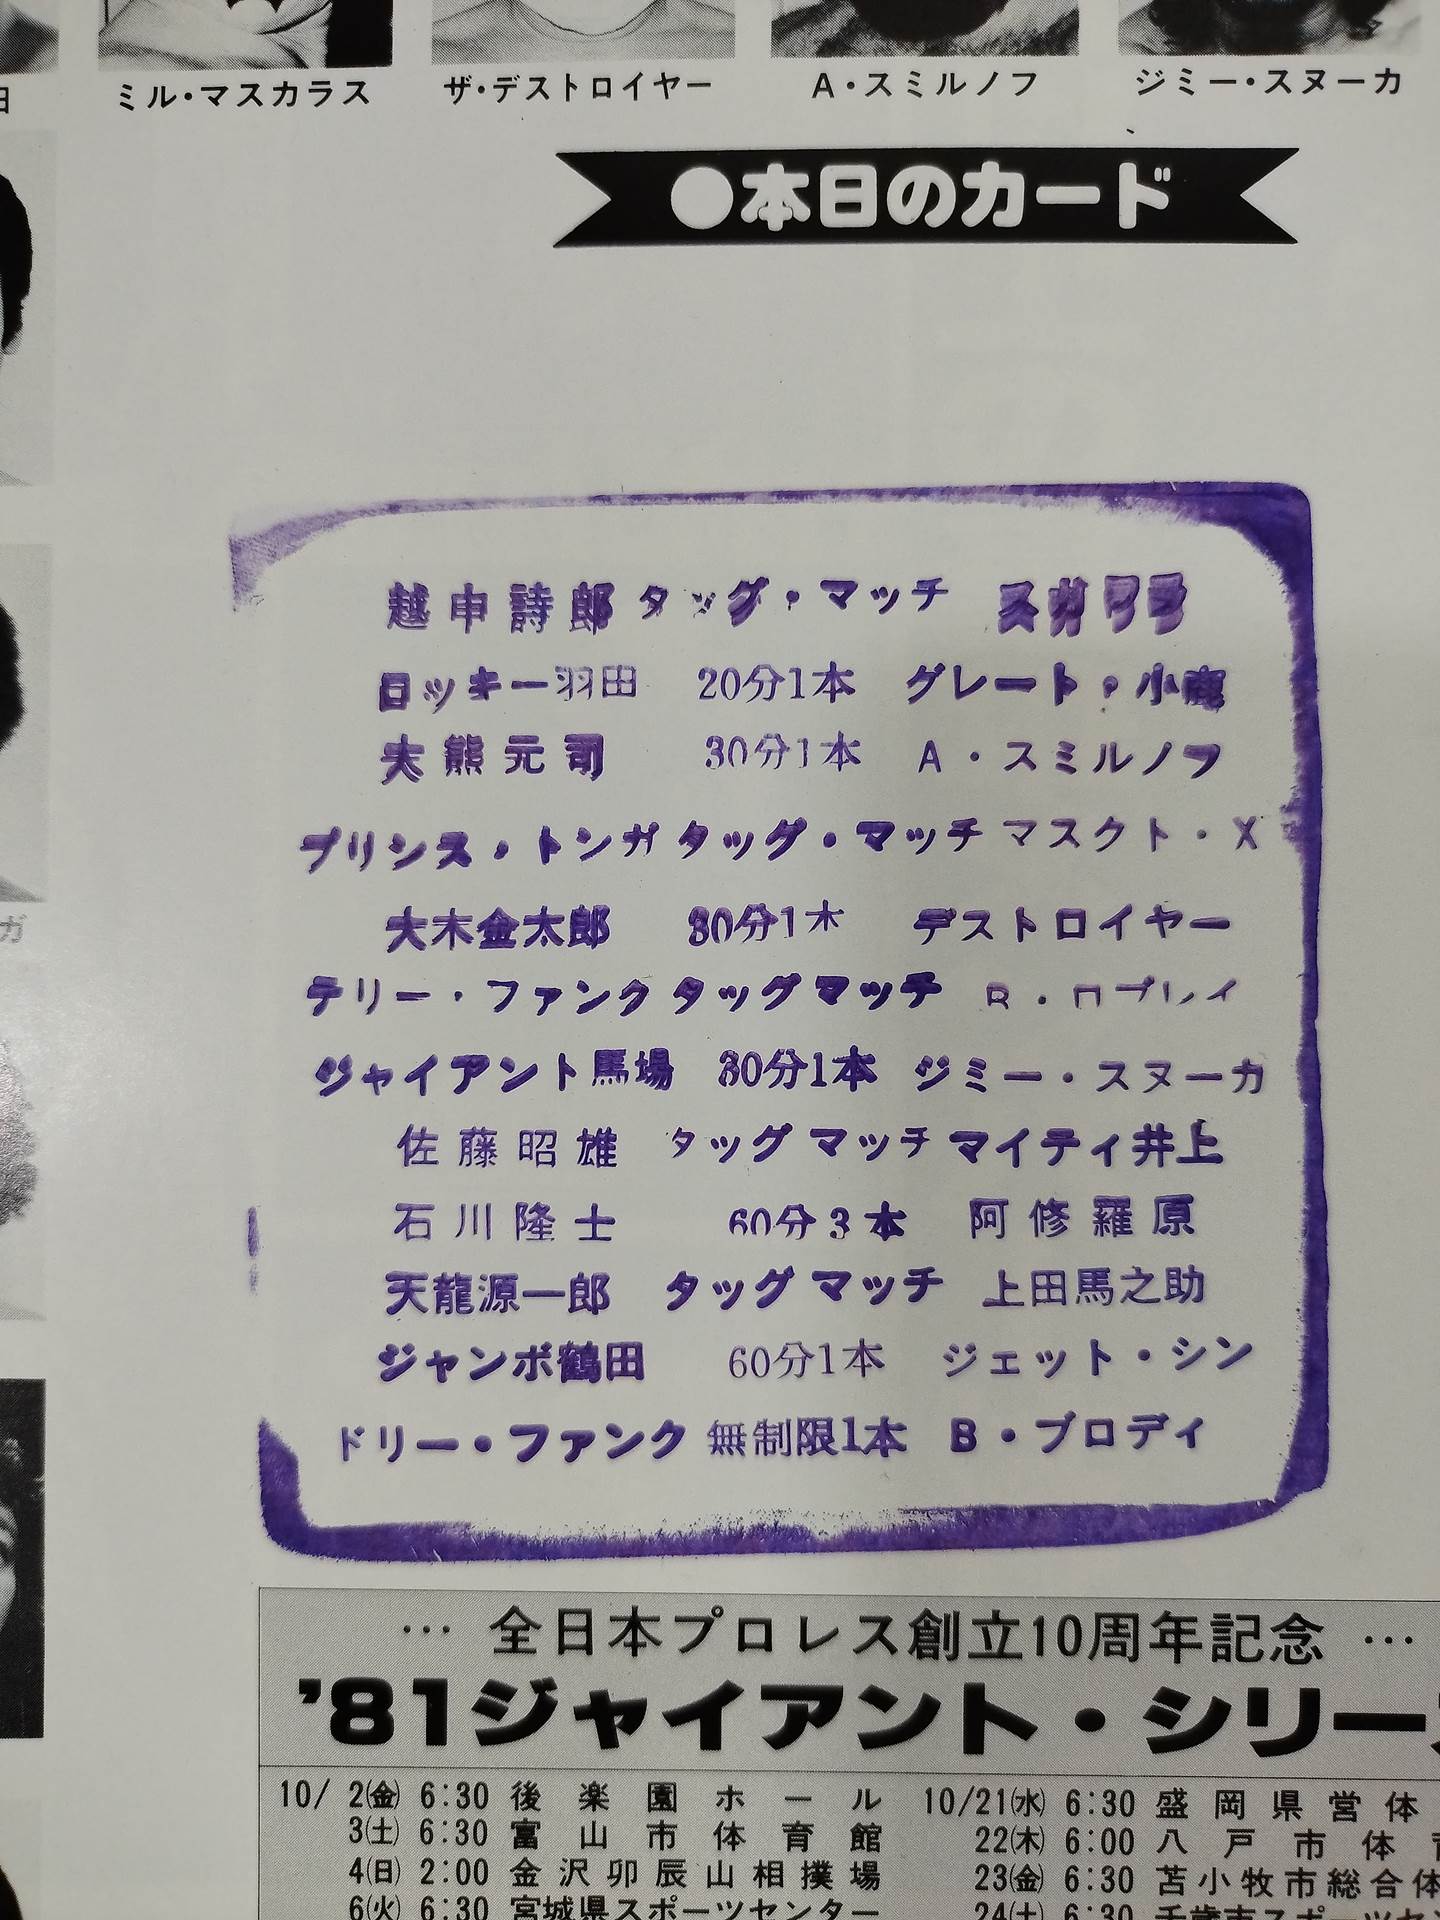 ミル・マスカラス
ザ・デストロイヤー
A・スミルノフ
ジミー・スヌーカ
●本日のカード
越中詩郎 タッグ・マッチ スガワラ
ロッキー羽田 20分1本 グレート・小鹿
大熊元司 30分1本 A・スミルノフ
プリンス・トンガ タッグ・マッチ マスクト・X
大木金太郎 30分1本 デストロイヤー
テリー・ファンク タッグマッチ R・
ジャイアント馬場 30分1本 ジミー・スヌーカ
佐藤昭雄 タッグマッチ マイティ井上
石川隆士 60分3本 阿修羅原
天龍源一郎 タッグマッチ 上田馬之助
ジャンボ鶴田 60分1本 ジェット・シン
ドリー・ファンク 無制限1本 B・ブロディ
… 全日本プロレス創立10周年記念 …
'81ジャイアント・シリー
10/ 2㈮ 6:30 後楽園ホール
3㈯ 6:30 富山市体育館
4㈰ 2:00 金沢卯辰山相撲場
6㈫ 6:30 宮城県スポーツセンター
10/21㈬ 6:30 盛岡県営体
22㈭ 6:00 八戸市体
23㈮ 6:30 苫小牧市総合体
24㈯ 6:30 千歳市スポーツセン
ガ